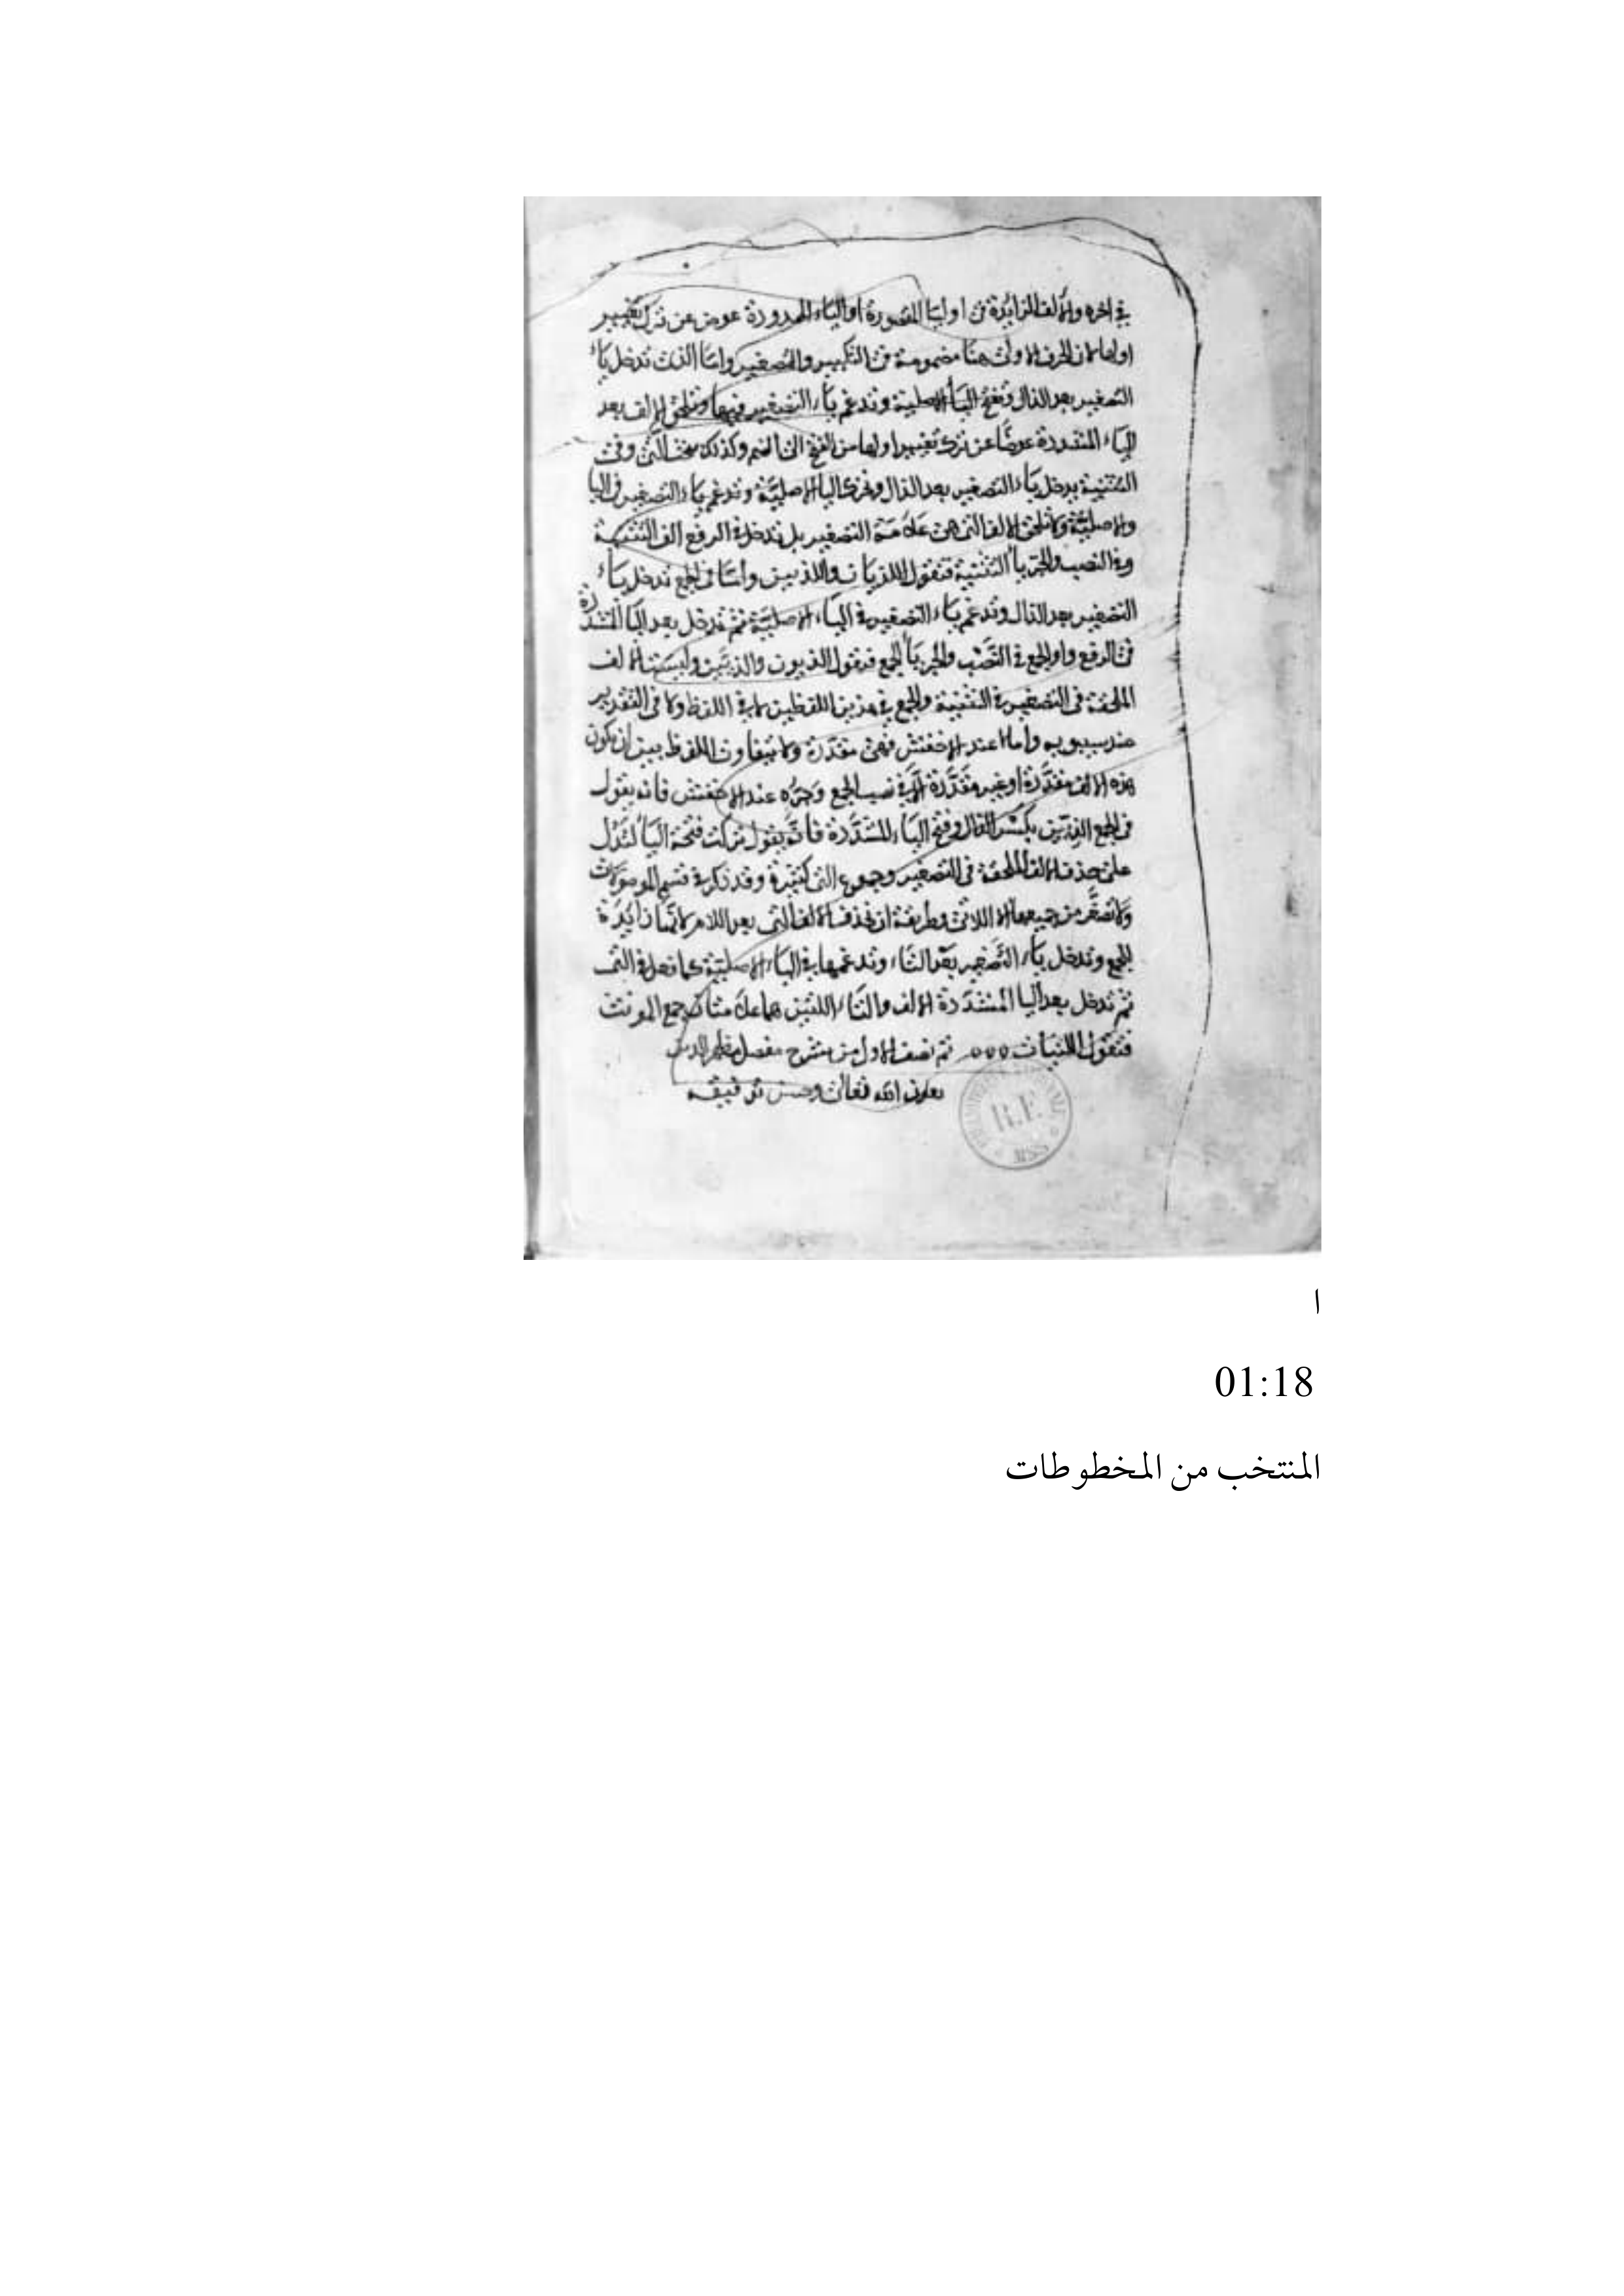 في اخره والالف الزايدة في اوليا المقصورة او الياء الممدودة عوض عن ترك تغيير
اولها لان الحرف الاول هنا مضمومة في التكبير والتصغير واما الذي تدخل ياء
التصغير بعد الذال وتفتح الياء الاصلية وتدغم ياء التصغير فيها وتلحق الالف بعد
الياء المشددة عوضا عن ترك تغيير اولها من الفتح الى الضم وكذلك التي وفي
التثنية يدخل ياء التصغير بعد الذال وتحرك اليا الاصلية وتدغم ياء التصغير في اليا
والاصلية ولا تلحق الالف التي هي علامة التصغير بل تدخل في الرفع الف التثنية
وفي النصب والجر ياء التثنية فتقول اللذيان واللذيين واما في الجمع تدخل ياء
التصغير بعد الذال وتدغم ياء التصغير في الياء الاصلية ثم تدخل بعد اليا المشددة
في الرفع واو الجمع في النصب والجر ياء الجمع فتقول الذيون والذيين وليست الالف
الملحقة في التصغير في التثنية والجمع في هذين اللفظين لا في اللفظ ولا في التقدير
عند سيبويه واما عند الاخفش فهي مقدرة ولا يتفاوت اللفظ بين ان يكون
هذه الالف مقدرة او غير مقدرة الا في نصب الجمع وجره عند الاخفش فانه يقول
في الجمع الذيين بكسر الذال وفتح الياء المشددة فانه يقول تركت فتحة الياء لتدل
على حذف الالف الملحقة في التصغير وجموع التي كثيرة وقد ذكر في قسم الموصولات
ولا تصغر من جميعها الا اللاتي وطريقة ان تحذف الالف التي بعد اللام لانها زايدة
للجمع وتدخل ياء التصغير بعد التاء وتدغمها في الياء الاصلية كما فعل في التي
ثم تدخل بعد اليا المشددة الالف والتاء اللتين هما علامتا جمع المونث
فتقول اللتيات ٥٥٥ ثم نصف الاول من شرح مفصل مظهر الدين
بعون الله تعالى وحسن توفيقه
R.F.
MSS
ا
01:18
المنتخب من المخطوطات